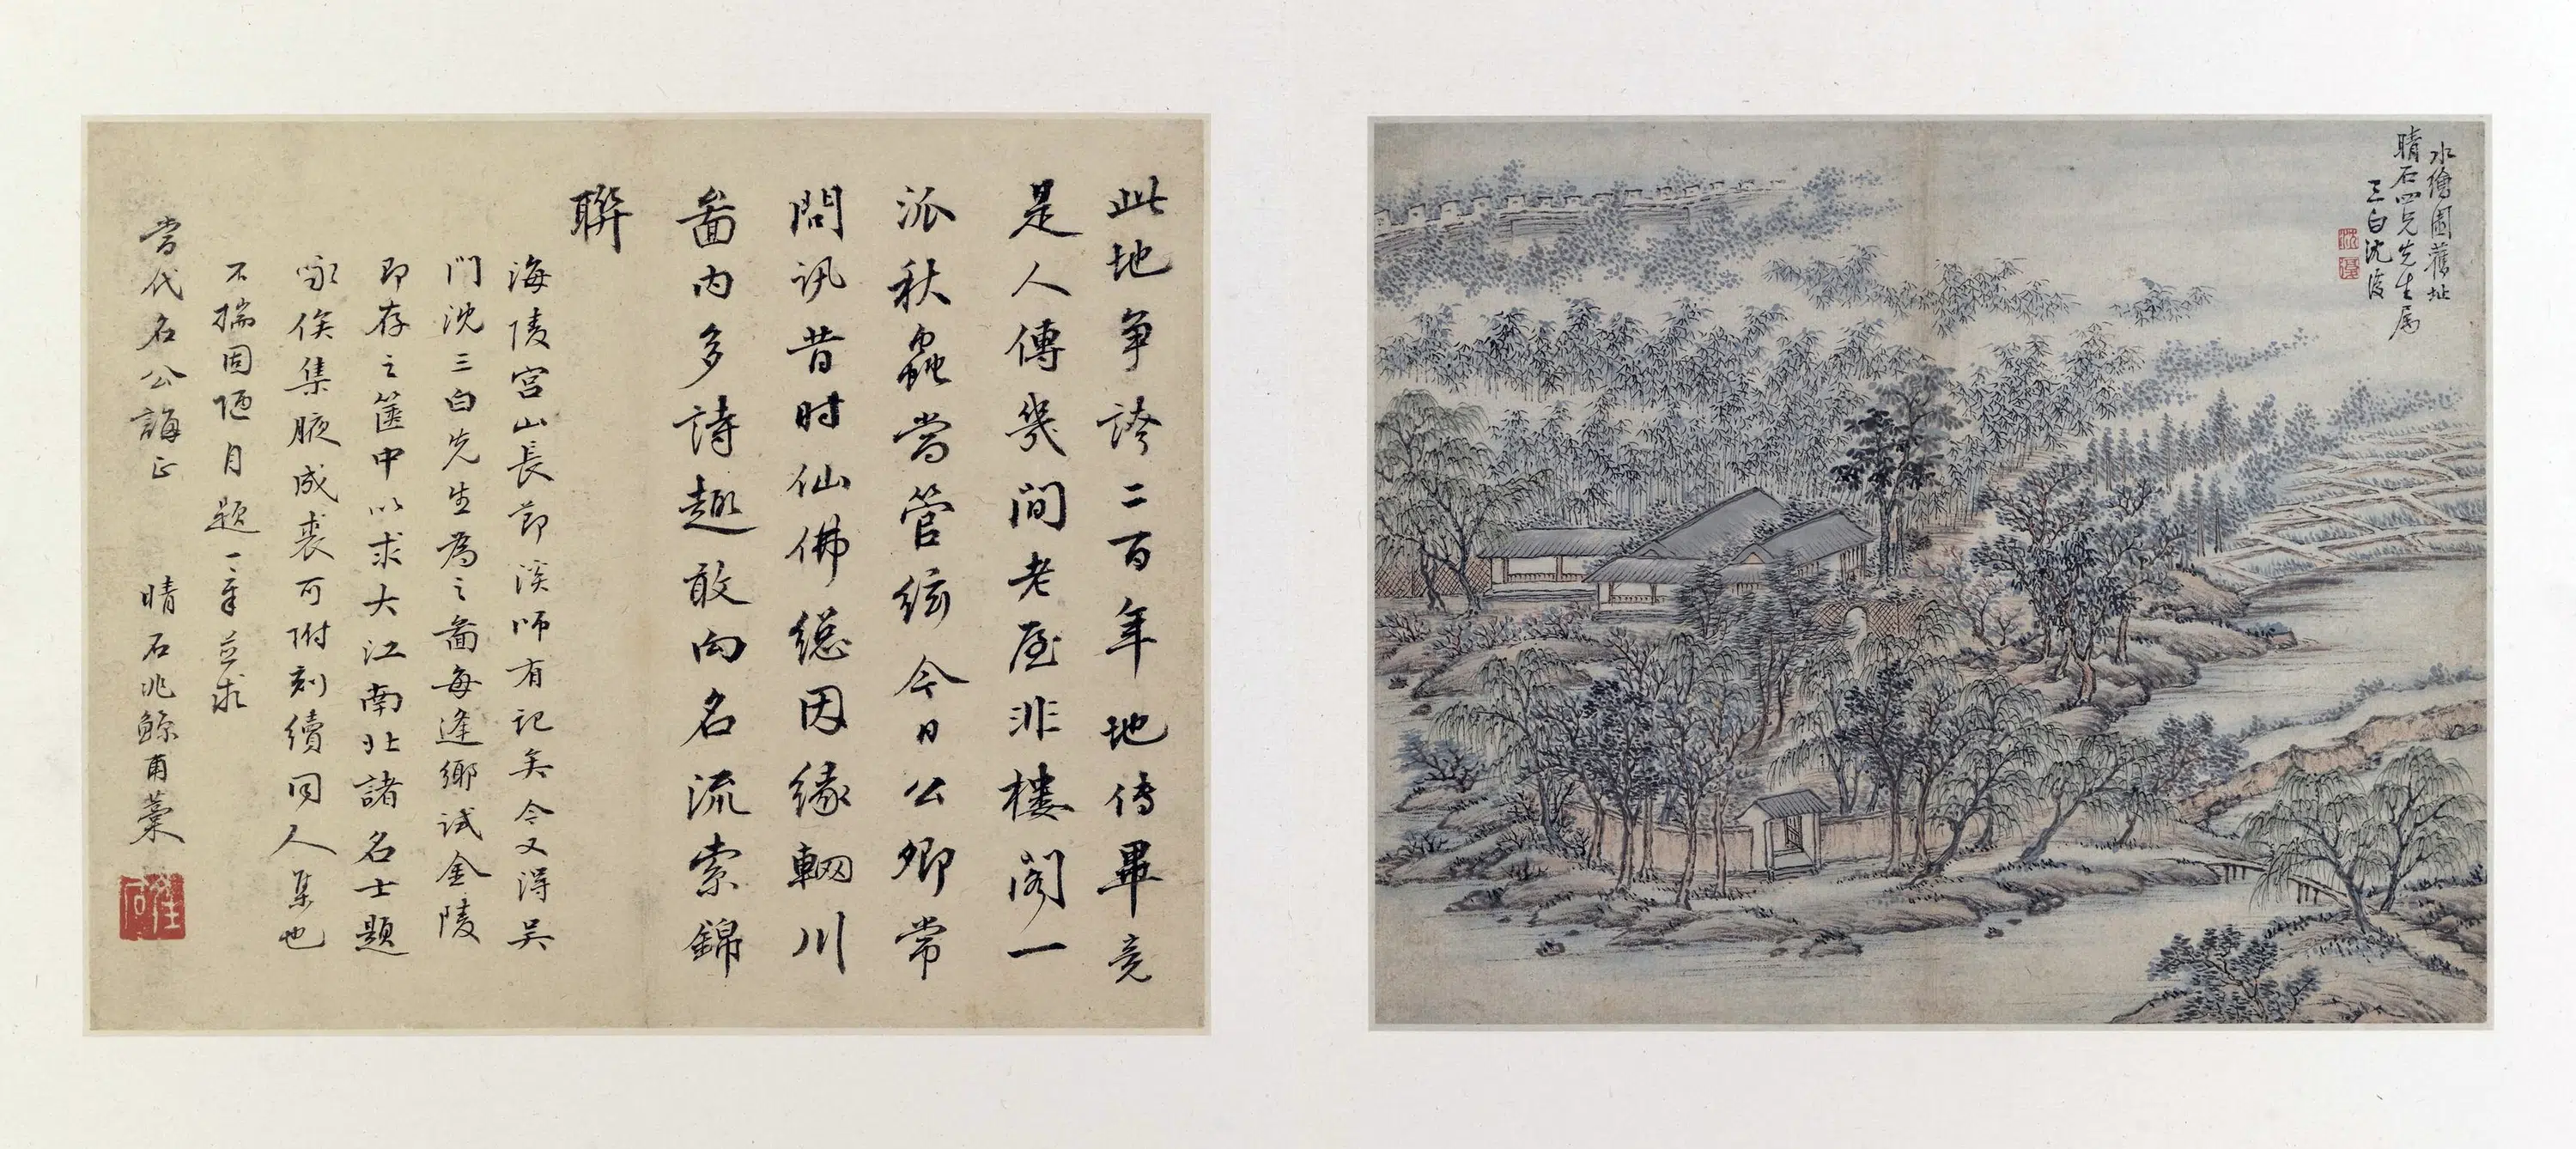 水繪園舊址
晴石四兄先生屬
三白沈復
沈
復
此地爭誇二百年地傳畢竟
是人傳幾間老屋非樓閣一
派秋蟲當管絃今日公卿常
問訊昔時仙佛總因緣輞川
啚內多詩趣敢向名流索錦
聯
海陵宮山長節溪師有記矣今又得吴
門沈三白先生為之啚每逢鄉試金陵
即存之篋中以求大江南北諸名士題
詠俟集腋成裘可附刻續同人集也
不揣固陋自題一章並求
當代名公誨正
晴石兆鯨甫藁